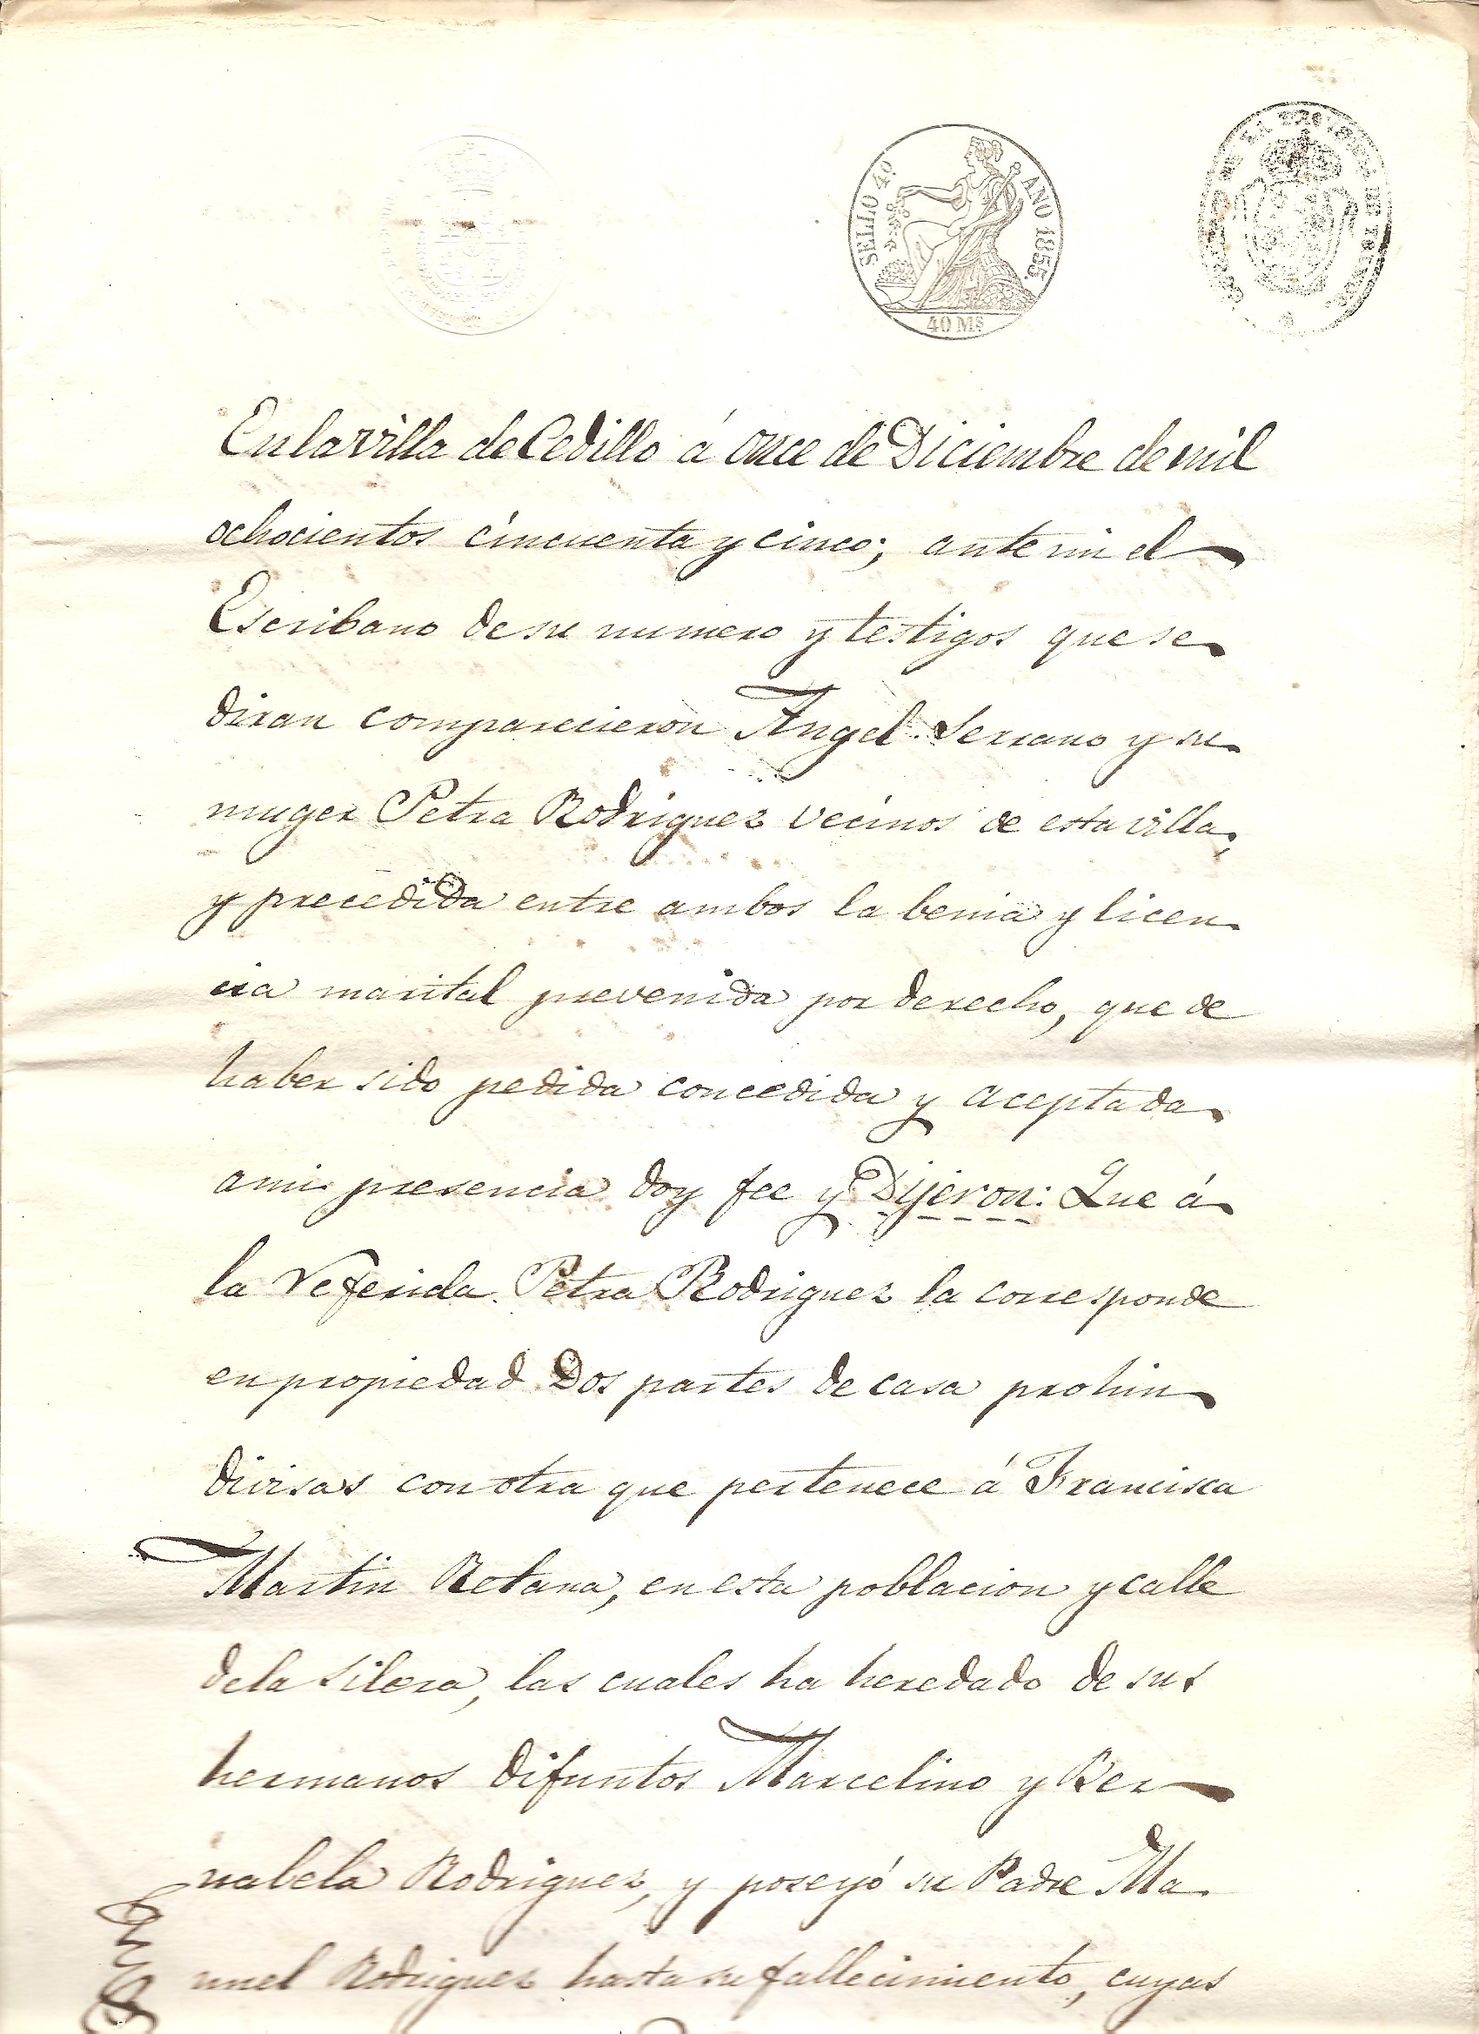 SELLO 4º AÑO 1855.
40 Mˢ
DE LA
En la villa de Cedillo á once de Diciembre de mil
ochocientos cincuenta y cinco; ante mi el
Escribano de su numero y testigos que se
diran comparecieron Angel Serrano y su
muger Petra Rodriguez vecinos de esta villa;
y precedida entre ambos la benia y licen
cia marital prevenida por derecho, que de
haber sido pedida concedida y aceptada
a mi presencia doy fee y Dijeron: Que á
la referida Petra Rodriguez la corresponde
en propiedad Dos partes de casa prohin
divisas con otra que pertenece á Francisca
Martin Retana, en esta poblacion y calle
de la Silera, las cuales ha heredado de sus
hermanos difuntos Marcelino y Ber
nabela Rodriguez, y poseyó su Padre Ma
nuel Rodriguez hasta su fallecimiento, cuyas